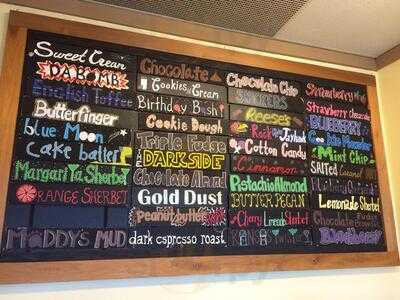 Sweet Cream
DA BOMB
English Toffee
Butterfinger
blue Moon
cake batter
Margarita Sherbet
ORANGE SHERBET
MADDY'S MUD
Chocolate
Cookies & Cream
Birthday Bash
Cookie Dough
Triple Fudge
DARKSIDE
Chocolate Almond
Gold Dust
Peanutbutter
dark espresso roast
Chocolate Chip
SNICKERS
Reese's
Rock Jayhawk
Cotton Candy
Cinnamon
Pistachio Almond
BUTTER PECAN
Cherry Limeade Sherbet
Strawberry
Strawberry Cheesecake
BLUEBERRY
Cookie Monster
Mint Chip
SALTED Caramel
Lemonade Sherbet
Chocolate Brownie